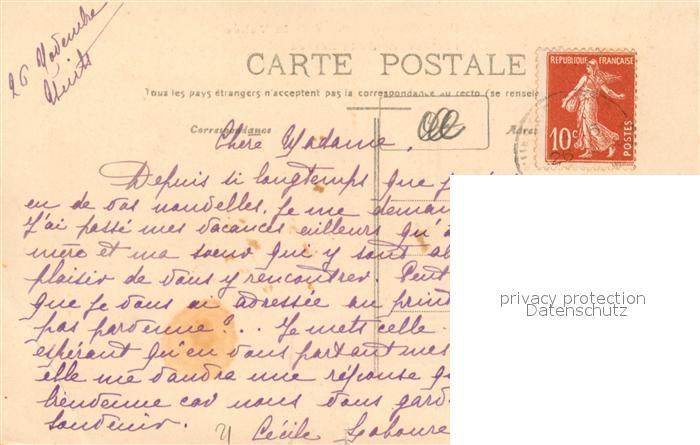 26 Novembre
CARTE POSTALE
REPUBLIQUE FRANÇAISE
10c
POSTES
26
Tous les pays étrangers n'acceptent pas la correspondance au recto (se rensei
Correspondance
Adres
Chère Madame,
Depuis si longtemps que je
en de vos nouvelles. Je me deman
J'ai passé mes vacances ailleurs qu'
mère et ma soeur qui y sont al
plaisir de vous y rencontrer. Peut
que je vous ai adressée au print
pas parvenue?.. Je mets celle
espérant qu'en vous portant mes
elle me vaudra une réponse q
bienvenue car nous vous gard
souvenir.
Cécile
privacy protection
Datenschutz